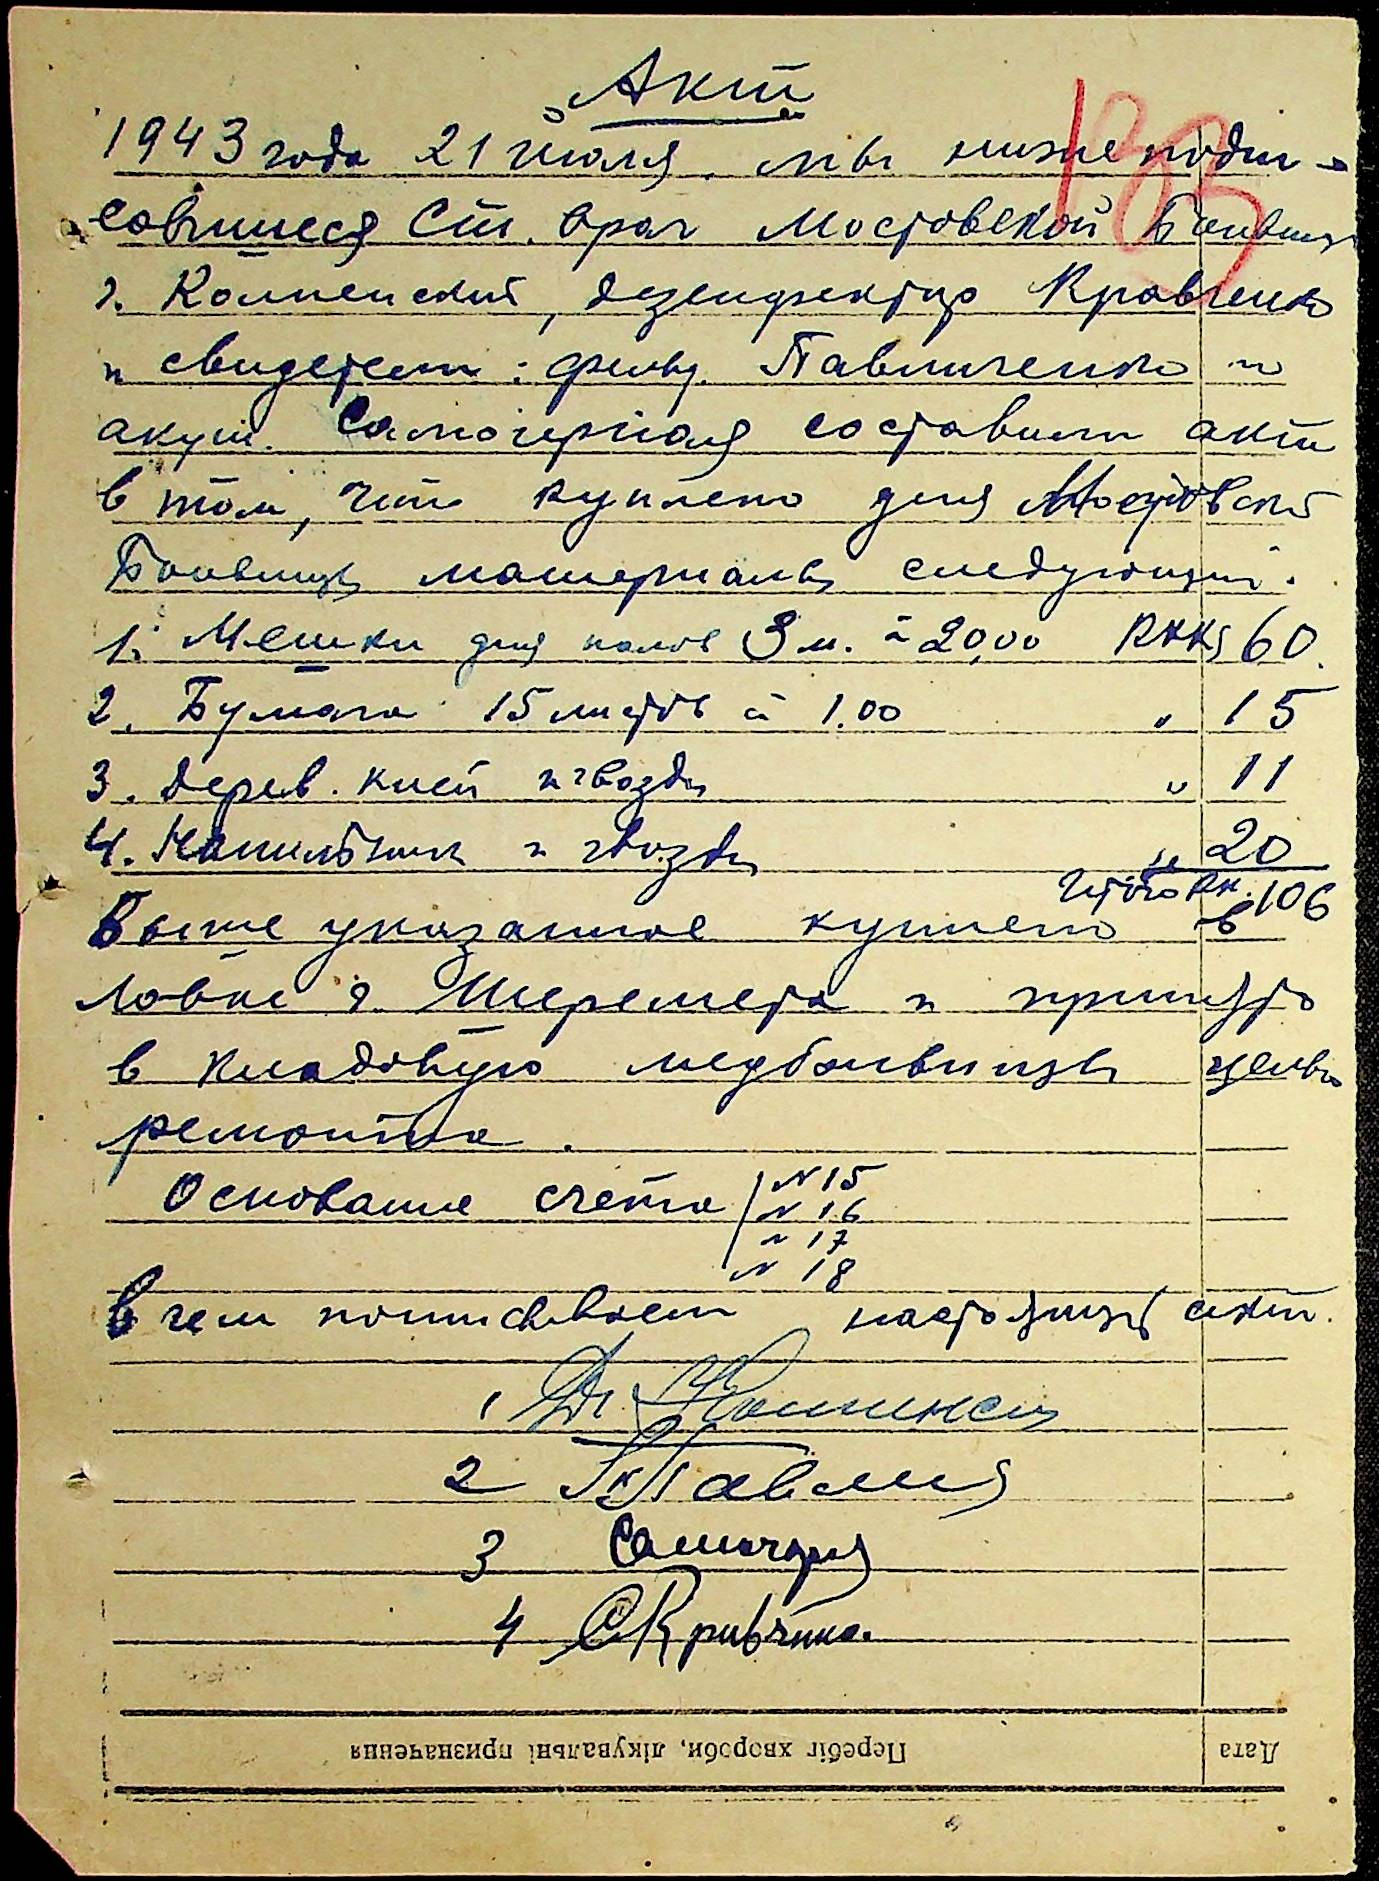 Акт
133
1943 года 21 июля мы нижеподпи-
савшиеся Ст. врач Мостовской Больницы
г. Коминский, дезенфектор Кравченко
и свидетели: фельд. Павличенко и
акуш. Самочерная составили акт
в том, что куплено для Мостовской
Больницы материалы следующий.
1. Мешки для полов 3 м. à 20,00 RKK 60.
2. Бумага 15 листов à 1.00 " 15
3. дерев. клей и гвозди " 11
4. Напильник и гвозди " 20
Итого Rk. 106
Выше указанное куплено в
лавке г. Шеремета и принято
в кладовую медбольницы целью
ремонта.
Основание счета N 15
N 16
N 17
N 18
В чем пописываем настоящий акт.
1 Др.
2 Павлич
3 Самочерня
4 СКривченко.
Дата Перебіг хвороби, лікувальні призначення